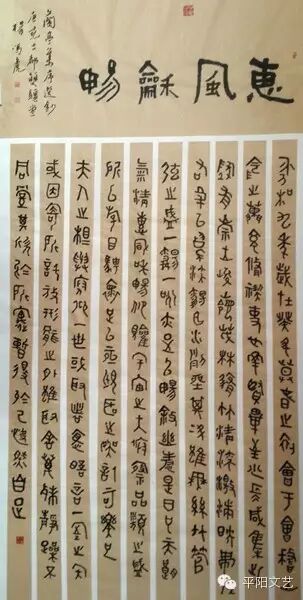 惠風龢暢
蘭亭集序選鈔
永和九年歲在癸丑暮春之初會于會稽
山陰之蘭亭脩禊事也群賢畢至少長咸集此
地有崇山峻領茂林脩竹又有清流激湍映帶左
右引以為流觴曲水列坐其次雖無絲竹管
弦之盛一觴一詠亦足以暢敘幽情是日也天朗
氣清惠風咊暢仰觀宇宙之大俯察品類之盛
所以游目騁懷足以極視聽之娛信可樂也
夫人之相與俯仰一世或取諸懷抱悟言一室之內
或因寄所託放形骸之外雖取舍萬殊靜躁不
同當其欣於所遇暫得於己怏然自足
平阳文艺